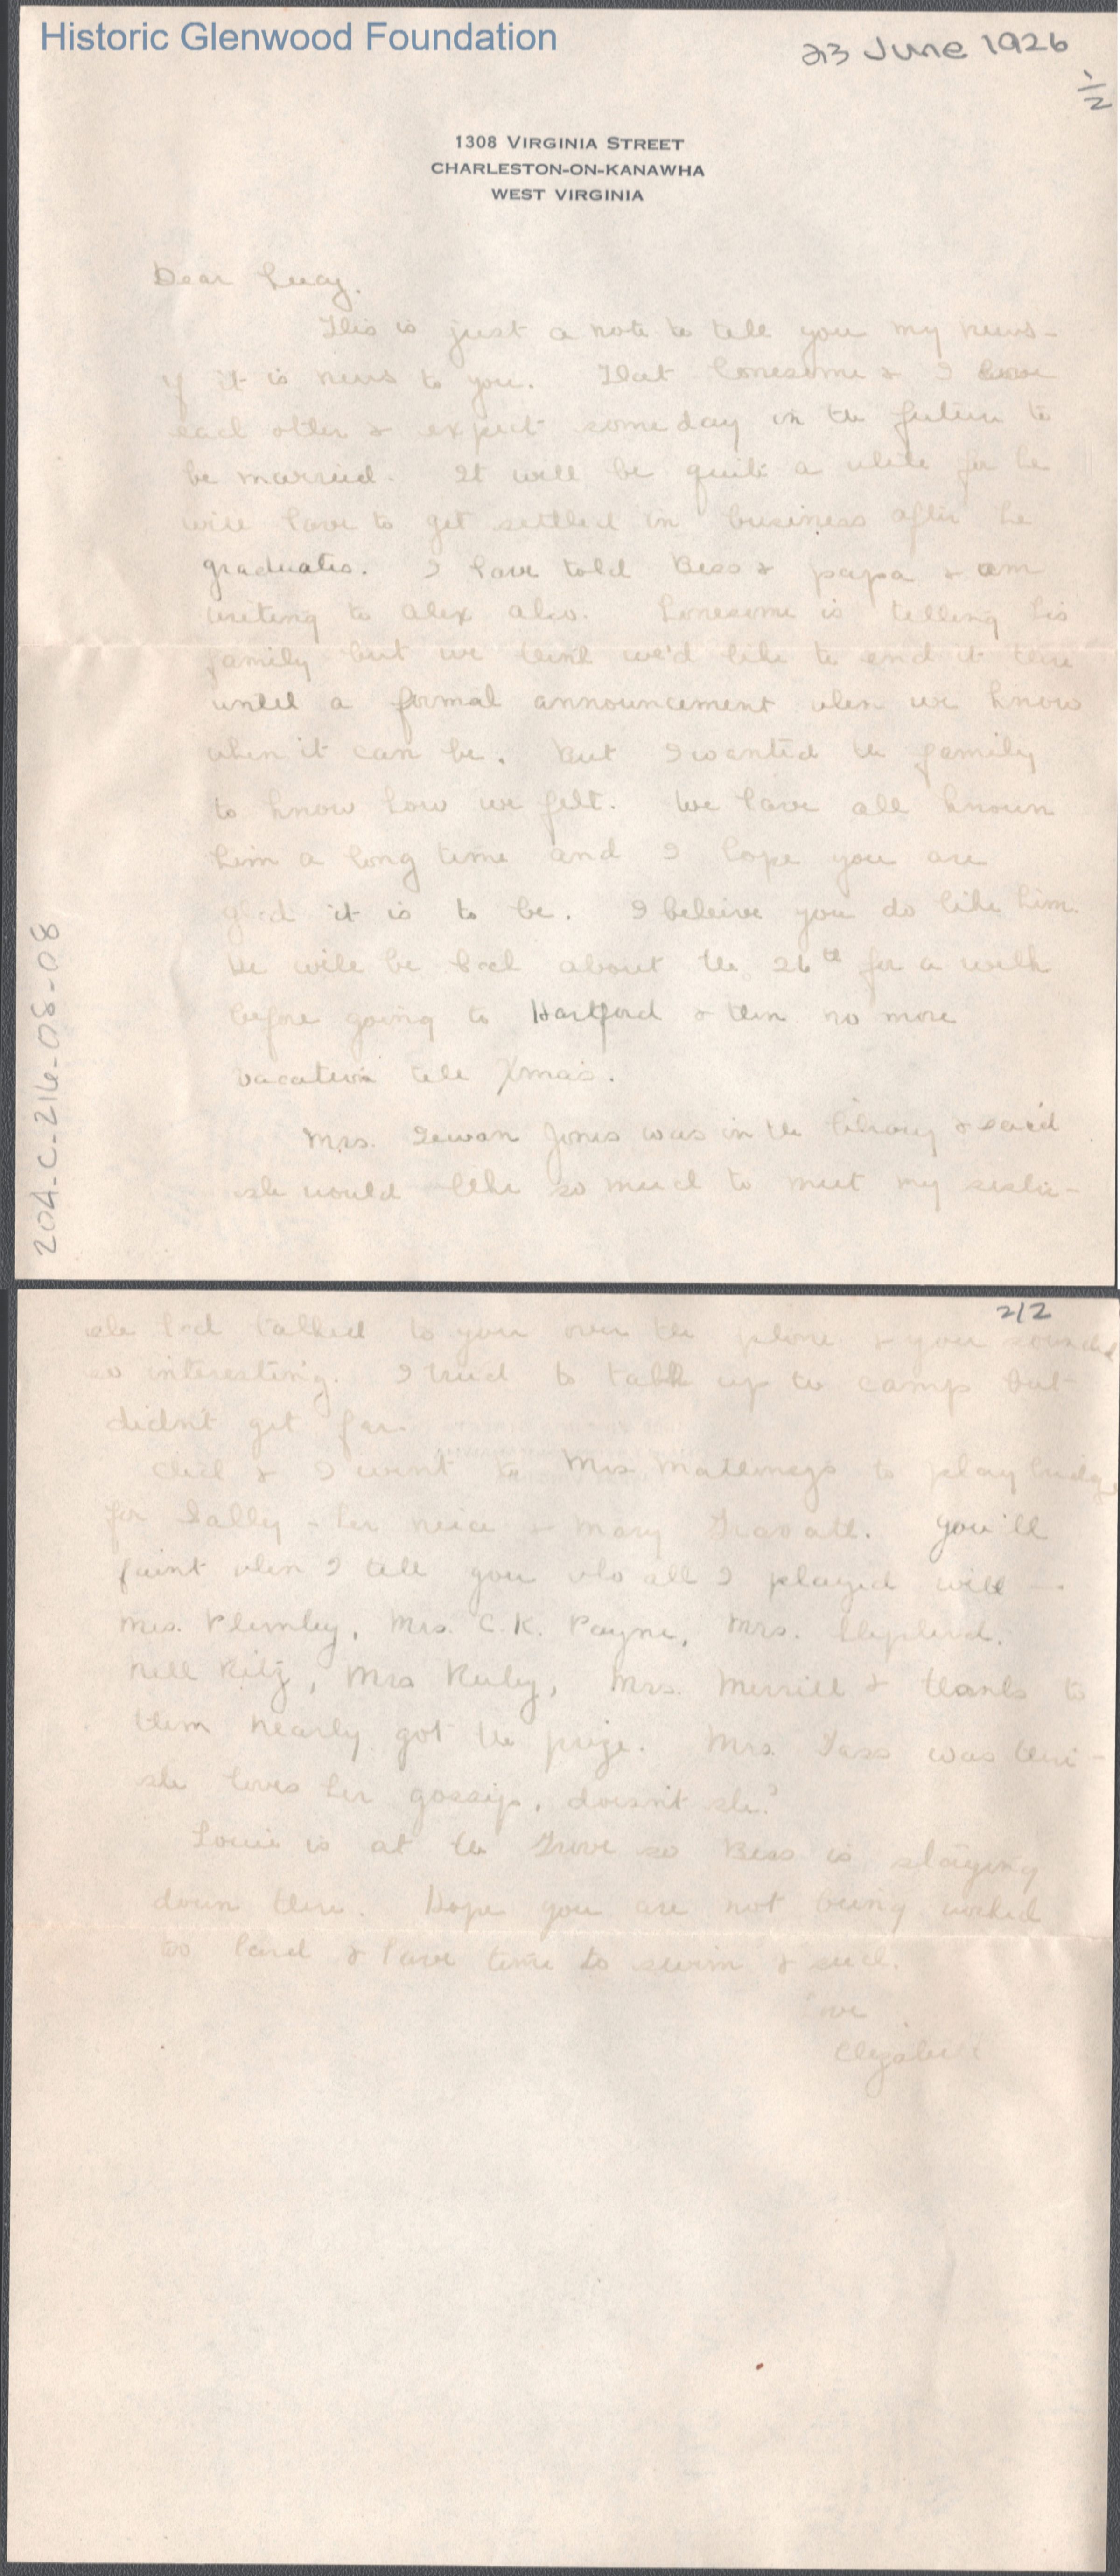 Historic Glenwood Foundation
23 June 1926
1/2
1308 VIRGINIA STREET
CHARLESTON-ON-KANAWHA
WEST VIRGINIA
Dear Lucy.
This is just a note to tell you my news -
if it is news to you. That Lonesome & I love
each other & expect some day in the future to
be married. It will be quite a while for he
will have to get settled in business after he
graduates. I have told Bess & papa & am
writing to Alex also. Lonesome is telling his
family but we think we'd like to end it there
until a formal announcement when we know
when it can be. But I wanted the family
to know how we felt. We have all known
him a long time and I hope you are
glad it is to be. I beleive you do like him.
He will be back about the 26th for a week
before going to Hartford & then no more
vacation till Xmas.
Mrs. Jones was in the library & said
she would like so much to meet my sister -
204-C-216-08-08
2/2
she had talked to you over the phone & you sounded
so interesting. I tried to talk up the camp but
didn't get far.
& I went to Mrs. Mattinegs to play bridge
for Sally - her neice & Mary. You'll
faint when I tell you who all I played with -
Mrs. Plumley, Mrs. C.K. Payne, Mrs. Shepherd.
Nell Ritz, Mrs Ruby, Mrs. Merrill & thanks to
them nearly got the prize. Mrs. was there -
she loves her gossip, doesn't she?
Louie is at the Grove so Bess is staying
down there. Hope you are not being worked
too hard & have time to swim & such.
Love
Elizabeth